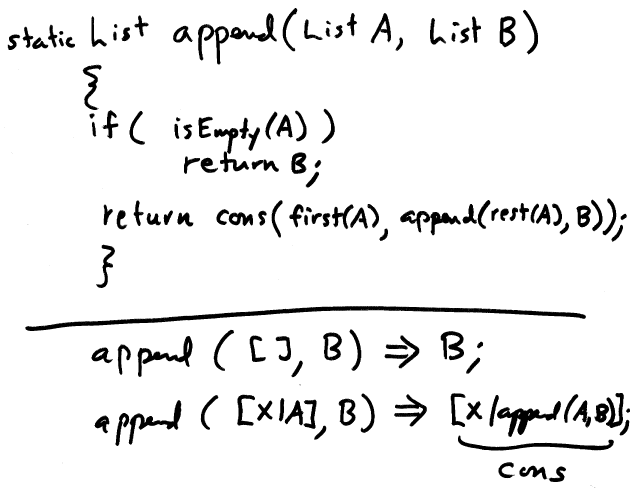 static List append(List A, List B)
{
if( isEmpty(A) )
return B;
return cons(first(A), append(rest(A), B));
}
append ( [ ], B) ⇒ B;
append ( [X|A], B) ⇒ [X|append(A,B)];
cons